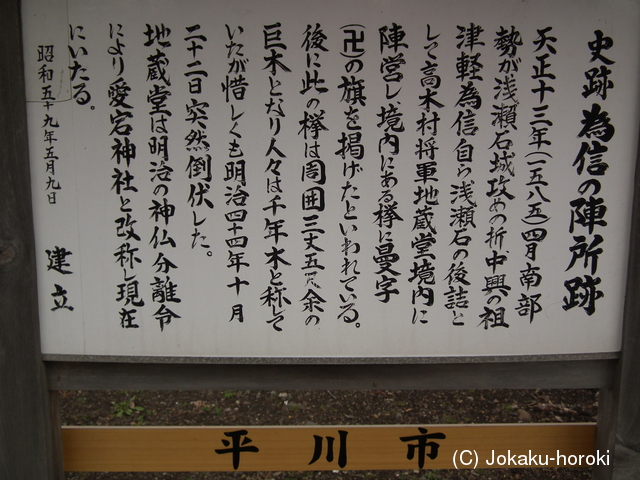 史跡 為信の陣所跡
天正十三年(一五八五)四月南部
勢が浅瀬石城攻めの折中興の祖
津軽為信自ら浅瀬石の後詰と
して高木村将軍地蔵堂境内に
陣営し境内にある欅に曼字
(卍)の旗を掲げたといわれている。
後に此の欅は周囲三丈五尺余の
巨木となり人々は千年木と称して
いたが惜しくも明治四十四年十月
二十二日突然倒伏した。
地蔵堂は明治の神仏分離令
により愛宕神社と改称し現在
にいたる。
昭和五十九年五月九日 建立
平川市
(C) Jokaku-horoki